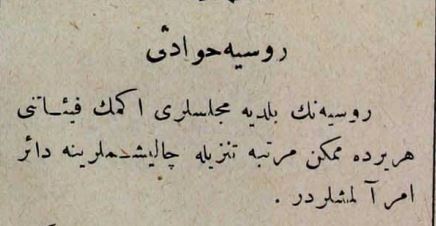 روسیه حوادثی
روسیه‌نك بلدیه مجلسلری اكمك فیئاتنی
هریرده ممكن مرتبه تنزیله چالیشدملرینه دائر
امر آلمشلردر .